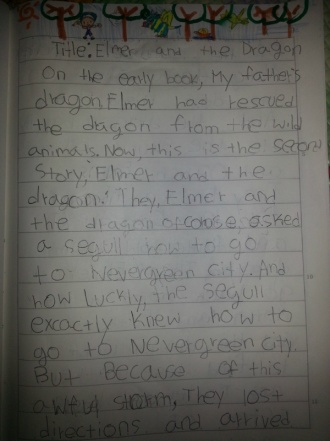 Title: Elmer and the Dragon
On the early book, My father's
dragon Elmer had rescued
the dragon from the wild
animals. Now, this is the second
Story, Elmer and the
dragon. They, Elmer and
the dragon of corose, asked
a segull how to go
to Nevergreen City. And
how Luckly, the segull
excactly knew how to
go to Nevergreen city.
But Because of this
awful storm, They lost
directions and arrived